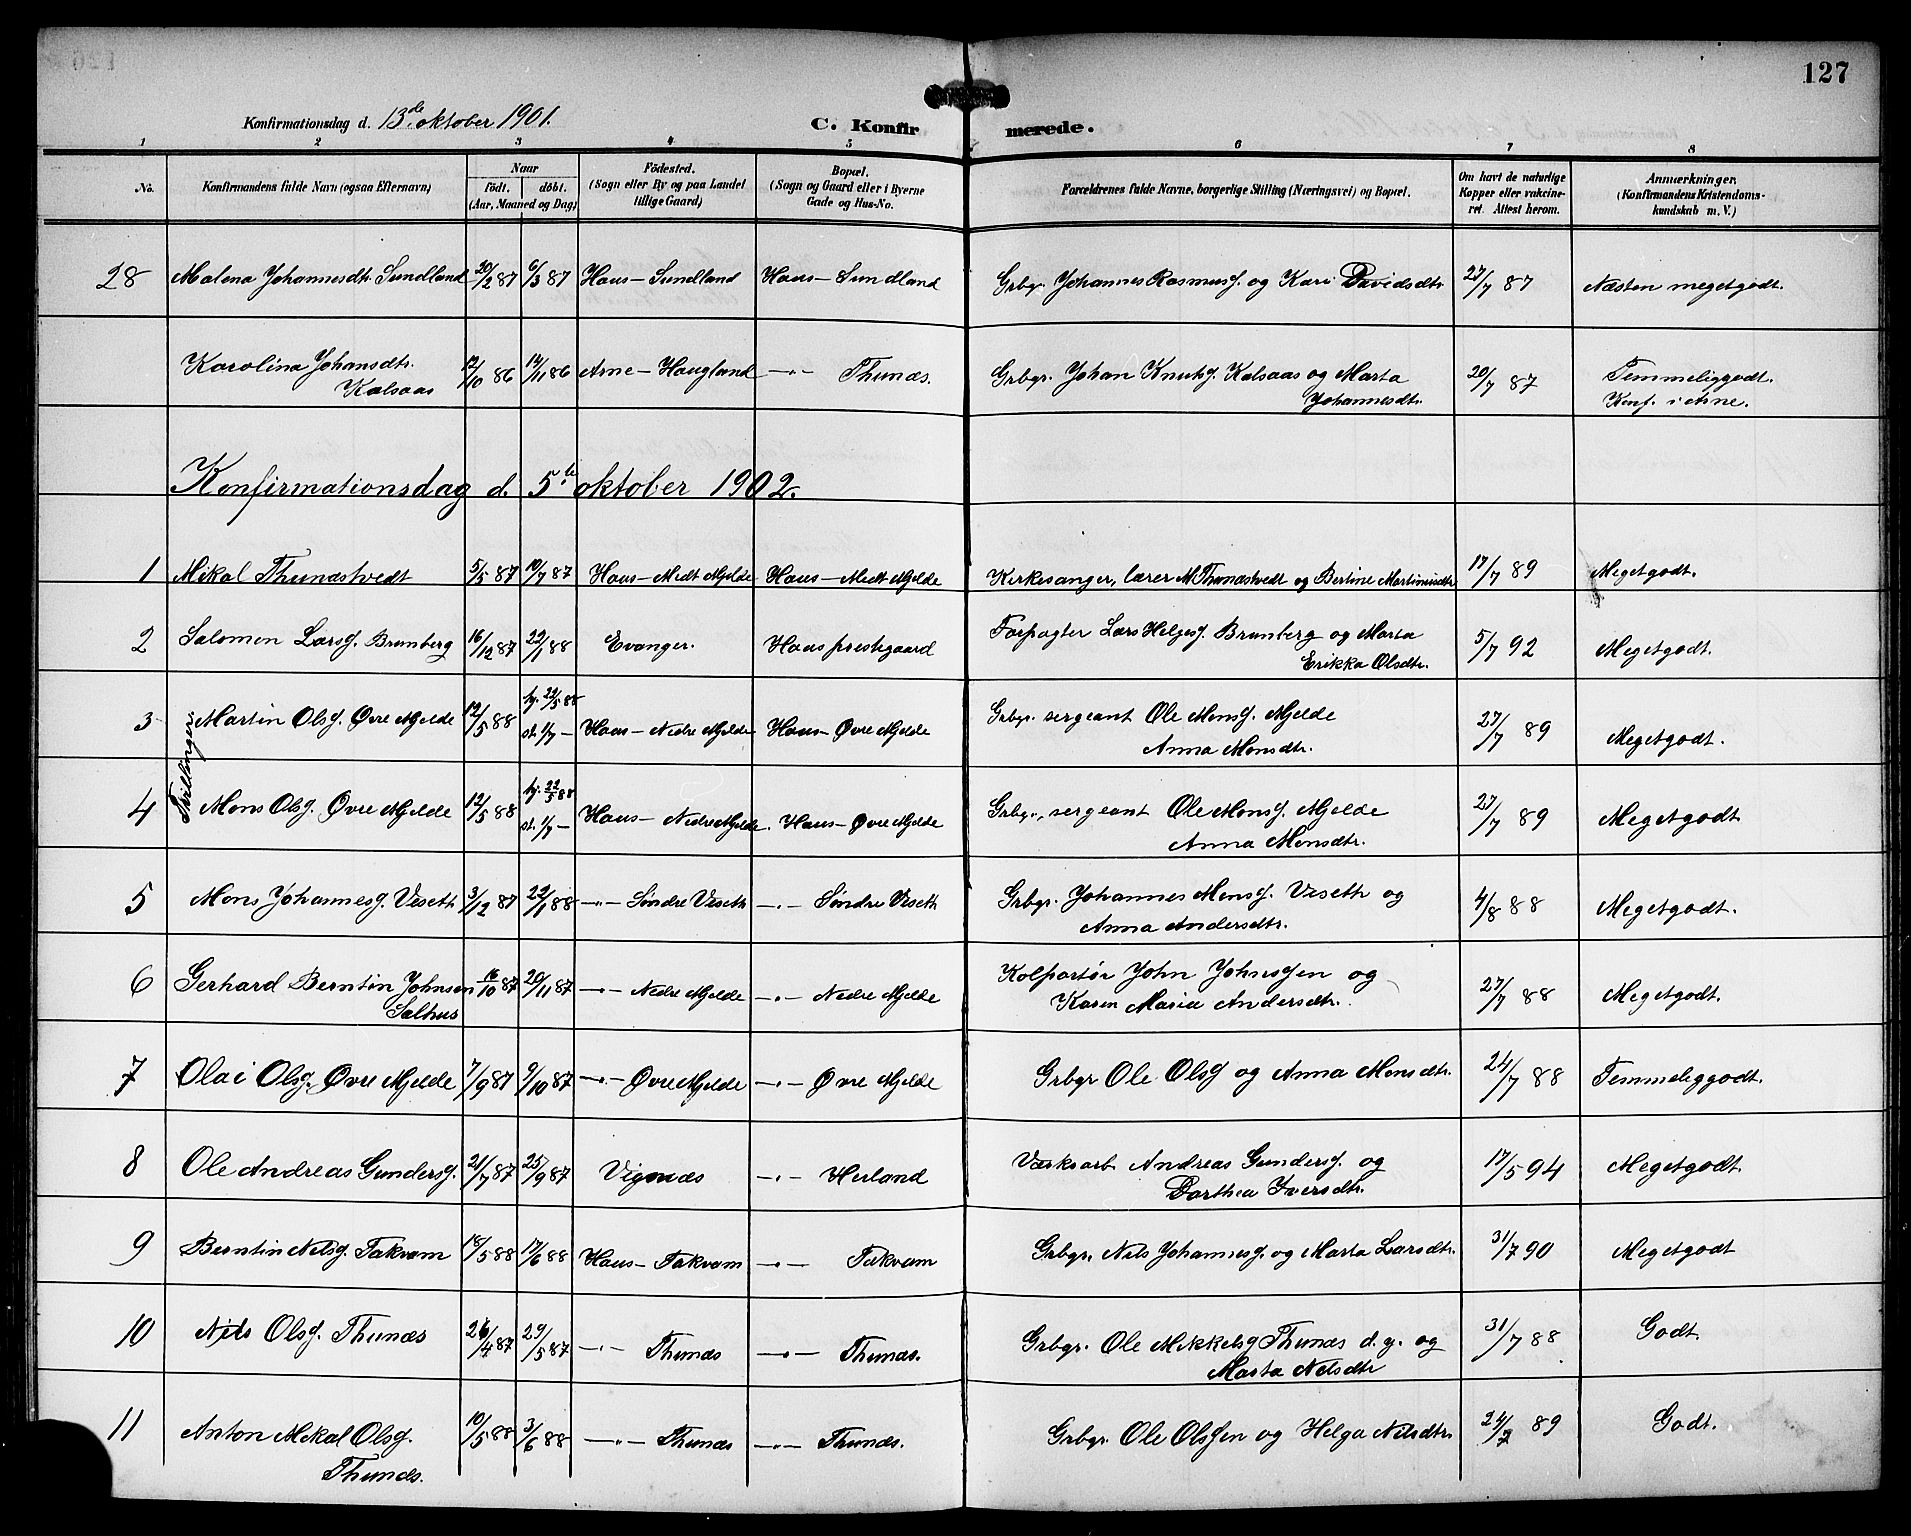 127
Konfirmationsdag d. 13de oktober 1901. C. Konfir merede.
1 2 3 4 5 6 7 8
No. Konfirmandens fulde Navn (ogsaa Efternavn) Naar födt. döbt. (Aar, Maaned og Dag) Födested. (Sogn eller By og paa Landet tillige Gaard) Bopæl. (Sogn og Gaard eller i Byerne Gade og Hus-No. Forældrenes fulde Navne, borgerlige Stilling (Næringsvei) og Bopæl. Om havt de naturlige Kopper eller vakcineret. Attest herom. Anmærkninger. (Konfirmandens Kristendomskundskab m. V.)
28 Malena Johannesdtr. Sundland 20/2 87 6/3 87 Haus – Sundland Haus – Sundland Grbgr. Johannes Rasmusſ. og Kari Davidsdtr. 27/7 87 Næsten megetgodt.
Karolina Johansdtr. 12/10 86 14/11 86 Arne – Haugland –"– Thunæs. Grbgr. Johan Knutsſ. Kalsaas og Marta 20/7 87 Temmeliggodt.
Kalsaas Johannesdtr. Konf. i Arne.
Konfirmationsdag d. 5te oktober 1902.
1 Mikal Thunæstvedt 5/5 87 10/7 87 Haus – Medt Mjelde Haus – Medt Mjelde Kirkesanger, lærer M Thunæstvedt og Bertine Martinusdtr 17/7 89 Megetgodt.
2 Salomon Larsſ. Brunberg 16/12 87 22/1 88 Evanger. Haus prestegaard Forpagter Lars Helgesſ. Brunberg og Marta 5/7 92 Megetgodt.
Erikka Olsdtr.
Tvillinger
3 Martin Olsſ. Øvre Mjelde 12/5 88 hj. 22/5 88 Haus – Nedre Mjelde Haus – Øvre Mjelde Grbgr. sergeant Ole Monsſ. Mjelde 27/7 89 Megetgodt.
st. 1/7 – Anna Monsdtr.
4 Mons Olsſ. Øvre Mjelde 12/5 88 hj. 22/5 88 Haus – Nedre Mjelde. Haus – Øvre Mjelde Grbgr., sergeant Ole Monsſ. Mjelde 27/7 89 Megetgodt
st. 1/7 – Anna Monsdtr.
5 Mons Johannesſ. Viseth 3/12 87 22/1 88 –"– Søndre Viseth –"– Søndre Viseth Grbgr. Johannes Monsſ. Viseth og 4/8 88 Megetgodt.
Anna Andersdtr.
6 Gerhard Berntin Johnsen 16/10 87 20/11 87 –"– Nedre Mjelde –"– Nedre Mjelde Kolportør John Johnsſen og 27/7 88 Megetgodt.
Salhus Karen Maria Andersdtr.
7 Olai Olsſ. Øvre Mjelde 7/9 87 9/10 87 –"– Øvre Mjelde –"– Øvre Mjelde Grbgr Ole Olsſ og Anna Monsdtr. 24/7 88 Temmeliggodt.
8 Ole Andreas Gundersſ. 21/7 87 25/9 87 Vignæs –"– Herland Værksarb Andreas Gundersſ. og 17/5 94 Megetgodt
Dorthea Iversdtr.
9 Berntin Nilsſ. Takvam 18/5 88 17/6 88 Haus – Takvam –"– Takvam Grbgr. Nils Johannesſ. og Marta Larsdtr. 31/7 90 Megetgodt
10 Nils Olsſ. Thunæs 26/4 87 29/5 87 –"– Thunæs –"– Thunæs. Grbgr. Ole Mikkelsſ Thunæs d. y. og 31/7 88 Godt.
Marta Nilsdtr
11 Anton Mikal Olsſ. 10/5 88 3/6 88 –"– Thunæs –"– Thunæs. Grbgr. Ole Olsſen og Helga Nilsdtr. 24/7 89 Godt.
Thunæs.